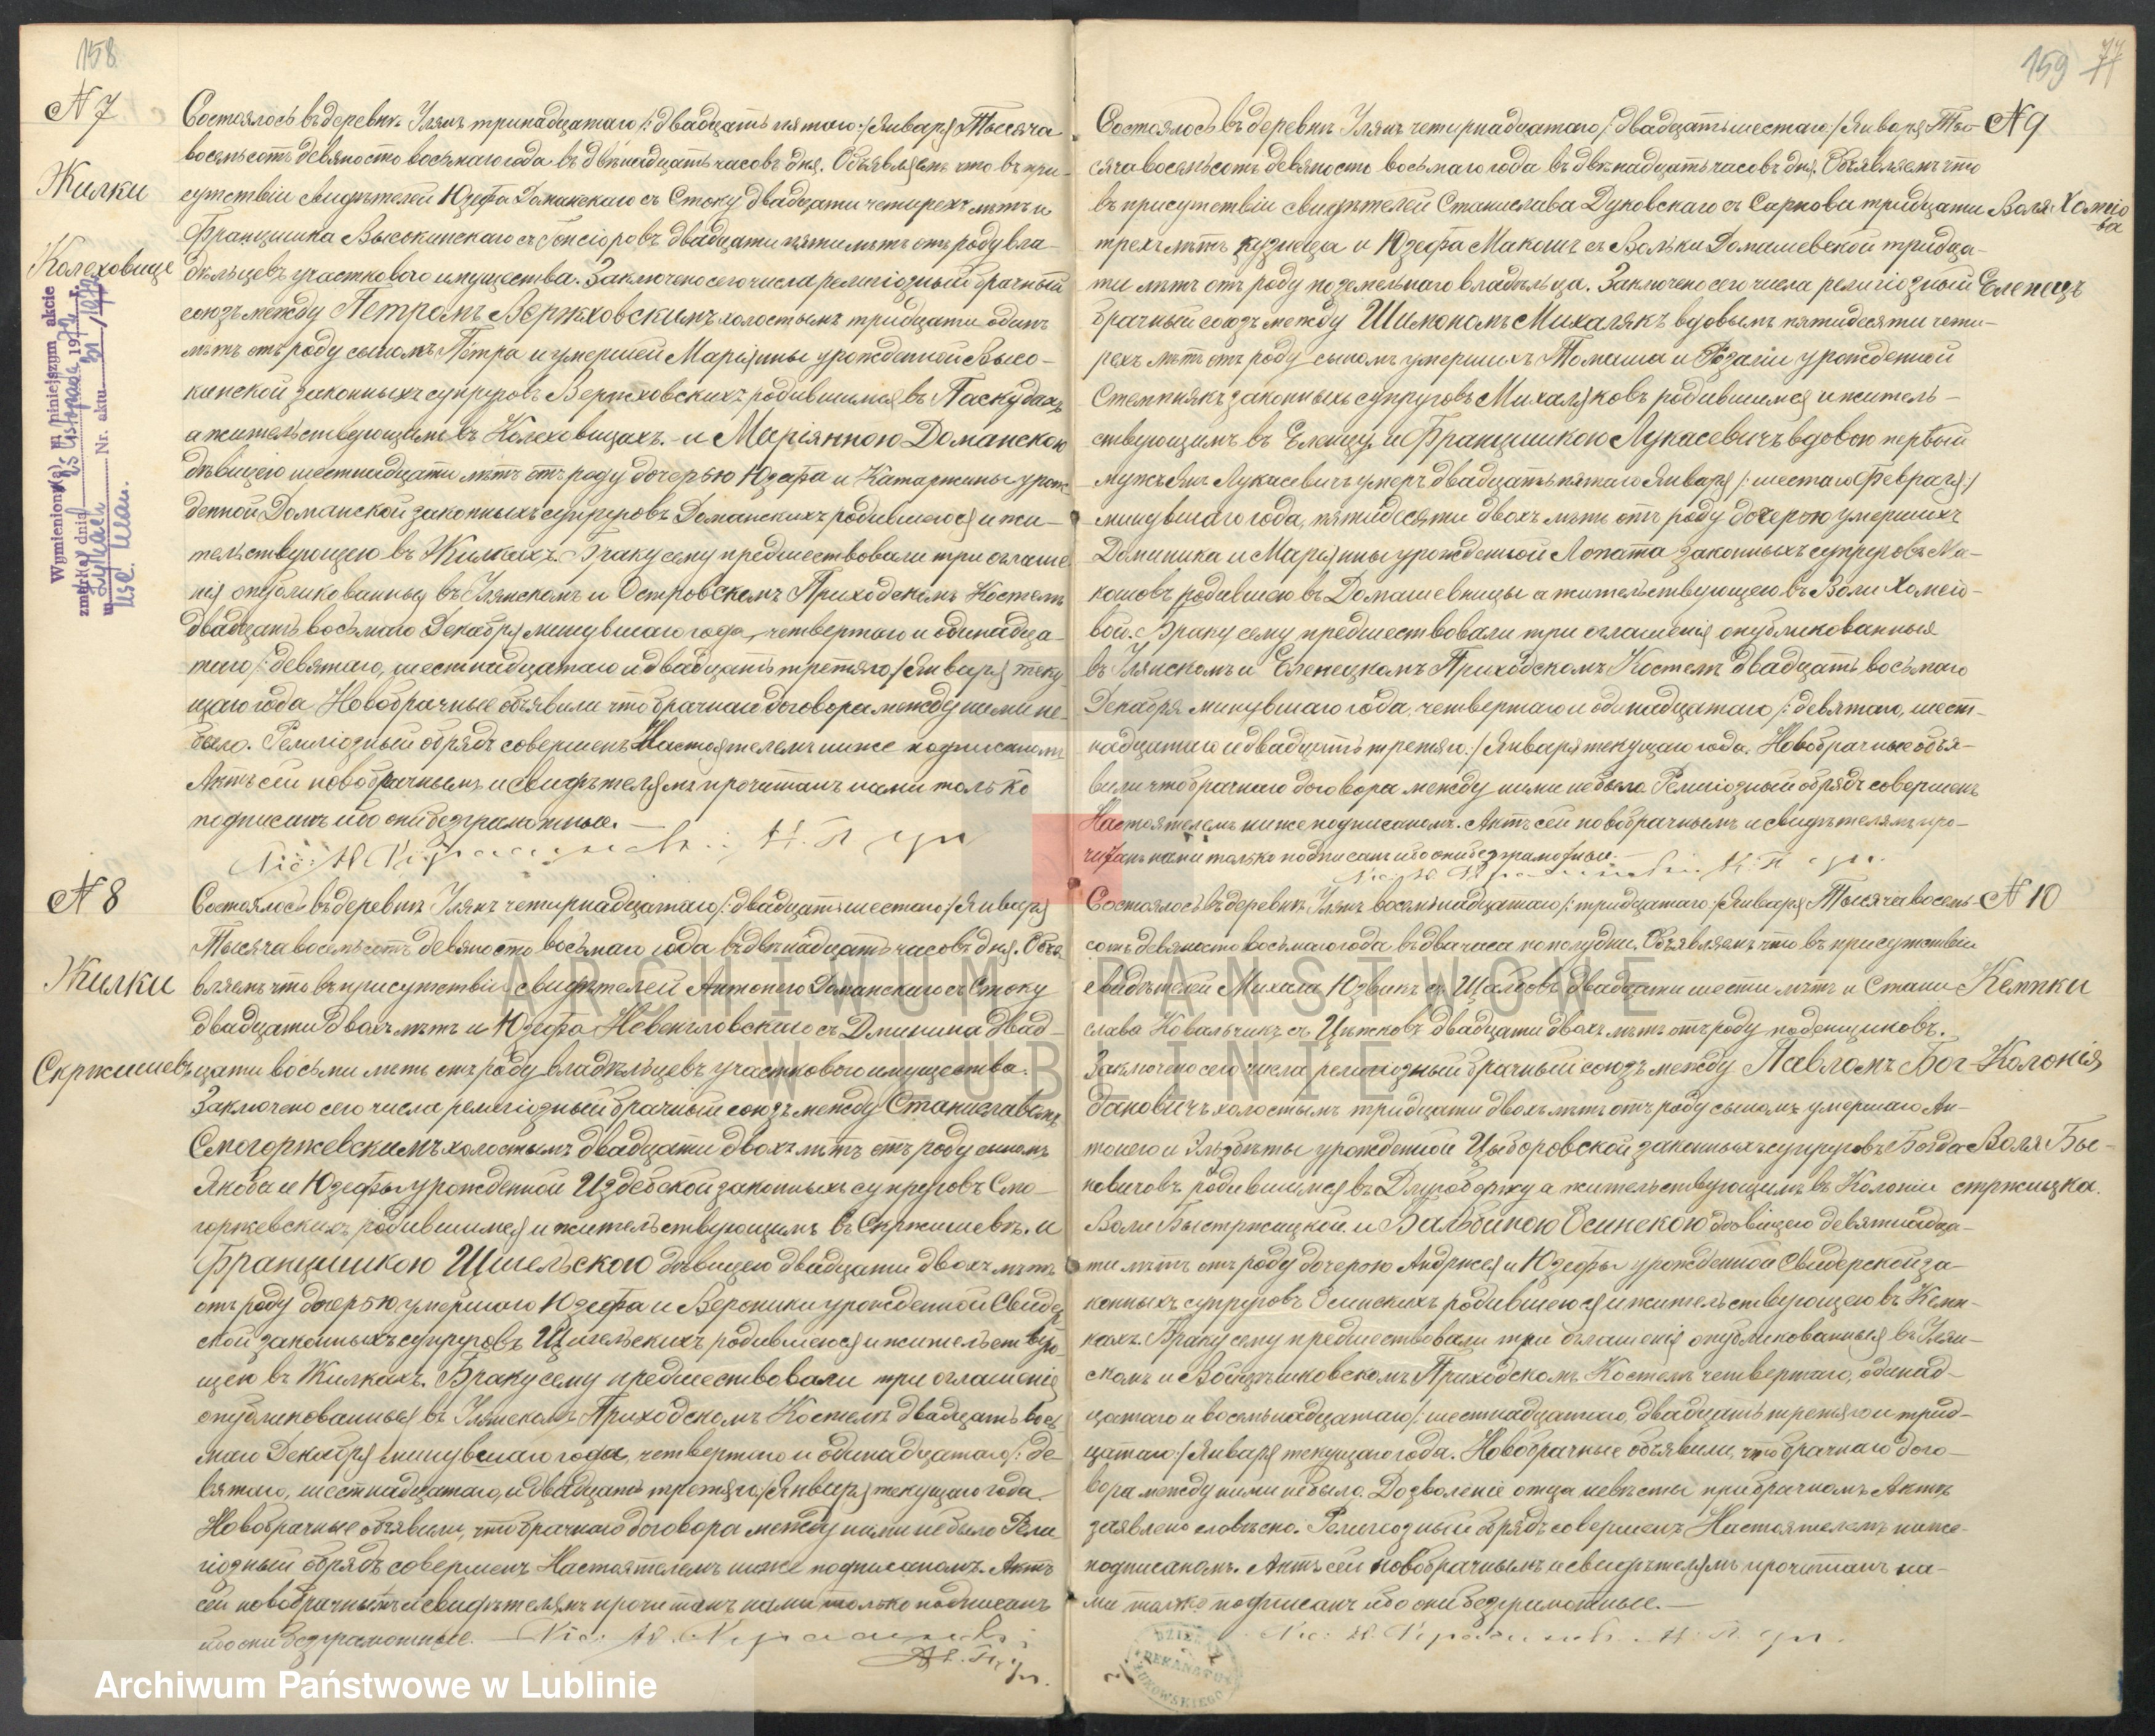 158
N 7
Жилки
Колеховице
Состоялось въ деревнѣ Улянъ тринадцатаго /: двадцать пятаго :/ Января Тысяча
восемьсотъ девяносто восьмаго года въ двѣнадцать часовъ дня. Объявляемъ что въ при-
сутствіи свидѣтелей Юзефа Доманскаго съ Стоку двадцати четырехъ лѣтъ и
Францишка Высокинскаго съ Гонсіоровъ двадцати пяти лѣтъ отъ роду вла-
дѣльцевъ участковаго имущества. Заключено сего числа религіозный брачный
союзъ между Петромъ Вержховскимъ холостымъ тридцати одинъ
лѣтъ отъ роду сыномъ Петра и умершей Маріянны урожденной Высо-
кинской законныхъ супруговъ Вержховскихъ родившимся въ Паскудахъ
а жительствующимъ въ Колеховицахъ. - и Маріянною Доманскою
дѣвицею шестнадцати лѣтъ отъ роду дочерью Юзефа и Катаржины урож-
денной Доманской законныхъ супруговъ Доманскихъ родившеюся и жи-
тельствующею въ Жилкахъ. Браку сему предшествовали три оглаше-
нія опубликованныя въ Улянскомъ и Островскомъ Приходскомъ Костелѣ
двадцать восьмаго Декабря минувшаго года, четвертаго и одинадца-
таго /: девятаго, шестнадцатаго и двадцать третяго :/ Января теку-
щаго года Новобрачные объявили что брачнаго договора между ними не-
было. Религіозный обрядъ совершенъ Настоятелемъ ниже подписаномъ
Актъ сей новобрачнымъ и свидѣтелямъ прочитанъ нами только
подписанъ ибо они безграмотные. —
N 8
Жилки
Скржишевъ
Состоялось въ деревнѣ Улянъ четырнадцатаго /: двадцать шестаго :/ Января
Тысяча восемьсотъ девяносто восьмаго года въ двѣнадцать часовъ дня. Объя-
вляемъ что въ присутствіи свидѣтелей Антонего Доманскаго съ Стоку
двадцати двохъ лѣтъ и Юзефа Невенгловскаго съ Дминина двад-
цати восьми лѣтъ отъ роду владѣльцевъ участковаго имущества.
Заключено сего числа религіозный брачный союзъ между Станиславомъ
Смогоржевскимъ холостымъ двадцати двохъ лѣтъ отъ роду сыномъ
Якоба и Юзефы урожденной Издебской законныхъ супруговъ Смо-
горжевскихъ родившимся и жительствующимъ въ Скржишевѣ. и
Францишкою Щигельскою дѣвицею двадцати двохъ лѣтъ
отъ роду дочерью умершаго Юзефа и Вероники урожденной Свидер-
ской законныхъ супруговъ Щигельскихъ родившеюся и жительствую-
щею въ Жилкахъ. Браку сему предшествовали три оглашенія
опубликованныя въ Улянскомъ Приходскомъ Костелѣ двадцать вось-
маго Декабря минувшаго года, четвертаго и одинадцатаго /: де-
вятаго, шестнадцатаго, и двадцать третяго :/ Января текущаго года
Новобрачные объявили, что брачнаго договора между ними не было Рели-
гіозный обрядъ совершенъ Настоятелемъ ниже подписаномъ. Актъ
сей новобрачнымъ и свидѣтелямъ прочитанъ нами только подписанъ
ибо они безграмотные.
Wymieniony(a) w niniejszym akcie
zmarł(a) dnia 25 listopada 1972 r.
w Nr. aktu 31/1972
159 77
N 9
Воля Хомеіо-
ва
Еленецъ
Состоялось въ деревнѣ Улянъ четырнадцатаго /: двадцать шестаго :/ Января Ты-
сяча восемьсотъ девяносто восьмаго года въ двѣнадцать часовъ дня. Объявляемъ что
въ присутствіи свидѣтелей Станислава Дуковскаго съ Сарнови тридцати
трехъ лѣтъ кузнеца и Юзефа Макошъ съ Вольки Домашевской тридца-
ти лѣтъ отъ роду поземельнаго владѣльца. Заключено сего числа религіозный
брачный союзъ между Шимономъ Михалякъ вдовымъ пятидесяти четы-
рехъ лѣтъ отъ роду сыномъ умершихъ Томаша и Розаліи урожденной
Стемпнякъ законныхъ супруговъ Михаляковъ родившимся и житель-
ствующимъ въ Еленцу, и Францишкою Лукасевичъ вдовою первый
мужъ Янъ Лукасевичъ умеръ двадцать пятаго Января /: шестаго Февраля :/
минувшаго года, пятидесяти двохъ лѣтъ отъ роду дочерью умершихъ
Доминика и Маріянны урожденной Лопата законныхъ супруговъ Ма-
кошовъ родившею въ Домашевницы а жительствующею въ Воли Хомеіо-
вой. Браку сему предшествовали три оглашенія опубликованныя
въ Улянскомъ и Еленецкомъ Приходскомъ Костелѣ двадцать восьмаго
Декабря минувшаго года. четвертаго и одинадцатаго /: девятаго, шест-
надцатаго и двадцать третяго :/ Января текущаго года. Новобрачные объя-
вили что брачнаго договора между ними не было Религіозный обрядъ совершенъ
Настоятелемъ ниже подписаномъ. Актъ сей новобрачнымъ и свидѣтелямъ про-
читанъ нами только подписанъ ибо они безграмотные. —
N 10
Кемпки
Колонія
Воля Бы-
стржицка.
Состоялось въ деревнѣ Улянъ восемьнадцатаго /: тридцатаго :/ Января Тысяча восемь-
сотъ девяносто восьмаго года въ два часа пополудни. Объявляемъ что въ присутствіи
свидѣтелей Михала Юзвикъ съ двадцати шести лѣтъ и Стани-
слава Ковальчикъ съ двадцати двохъ лѣтъ отъ роду поденщиковъ.
Заключено сего числа религіозный брачный союзъ между Павломъ Бог-
дановичъ холостымъ тридцати двохъ лѣтъ отъ роду сыномъ умершаго Ан-
тонего и Эльжбѣты урожденной Цыборовской законныхъ супруговъ Богда-
новичовъ родившимся въ а жительствующимъ въ Колоніи
Воли Быстржицкой. и Бальбиною Осинскою дѣвицею девятнадца-
ти лѣтъ отъ роду дочерью Анджея и Юзефы урожденной Свидерской за-
конныхъ супруговъ Осинскихъ родившеюся и жительствующею въ Кемп-
кахъ. Браку сему предшествовали три оглашенія опубликованныя въ Улян-
скомъ и Войцѣшковскомъ Приходскомъ Костелѣ четвертаго, одинад-
цатаго и восемьнадцатаго /: шестнадцатаго, двадцать третяго и трид-
цатаго :/ Января текущаго года. Новобрачные объявили, что брачнаго дого-
вора между ними не было. Дозволеніе отца невѣсты при брачномъ Актѣ
заявлено словесно. Религіозный обрядъ совершенъ Настоятелемъ ниже-
подписаномъ. Актъ сей новобрачнымъ и свидѣтелямъ прочитанъ на-
ми только подписанъ ибо они безграмотные. —
DZIEKAN
DEKANATU
ŁUKOWSKIEGO
ARCHIWUM PAŃSTWOWE
W LUBLINIE
Archiwum Państwowe w Lublinie